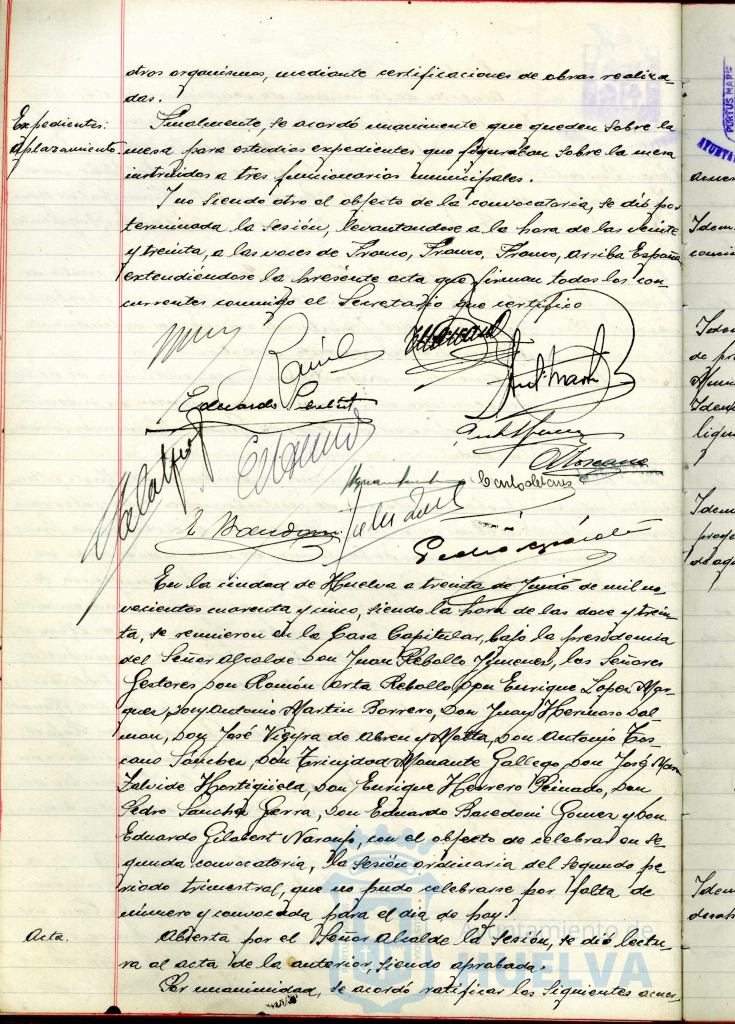 otros organismos, mediante certificaciones de obras realiza-
das.
Expedientes.
Aplazamiento.
Finalmente, se acordó unanimente que queden sobre la
mesa para estudios expedientes que figuraban sobre la mesa
instruidos a tres funcionarios municipales.
Y no siendo otro el objeto de la convocatoria, se dió por
terminada la sesión, levantandose a la hora de las veinte
y treinta, a las voces de Franco, Franco, Franco, Arriba España
extendiéndose la presente acta que firman todos los con-
currentes conmigo el Secretario que certifico
Eduardo
Toscano
Pedro
En la ciudad de Huelva a treinta de Junio de mil no-
vecientos cuarenta y cinco, siendo la hora de las doce y trein-
ta, se reunieron en la Casa Capitular, bajo la presidencia
del Señor Alcalde Don Juan Rebollo Jimenez, los Señores
Gestores Don Ramón Arta Rebollo, Don Enrique Lopez Mar-
quez, Don Antonio Martin Borrero, Don Juan Hermoso Dal-
man, Don José Vieyra de Abreu y Motta, Don Antonio Tos-
cano Sánchez, Don Trinidad Monante Gallego, Don José
Zalvide Hortigüela, Don Enrique Herrero Peinado, Don
Pedro Sanchez Gerra, Don Eduardo Bacedoni Gomez y Don
Eduardo Gilabert Naranjo, con el objeto de celebrar en se-
gunda convocatoria, la sesión ordinaria del segundo pe-
riodo trimestral, que no pudo celebrarse por falta de
número y convocada para el dia de hoy.
Acta.
Abierta por el Señor Alcalde la sesión, se dió lectu-
ra al acta de la anterior, siendo aprobada.
Por unanimidad, se acordó ratificar los siguientes acuer-
Ayuntamiento de
HUELVA
PORTUS MARIS
AYUNTA
acuer
Idem
Idem
de pr
Idem
Idem
Idem